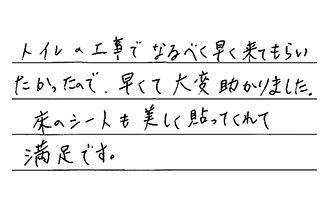 トイレの工事でなるべく早く来てもらい
たかったので、早くて大変助かりました。
床のシートも美しく貼ってくれて
満足です。